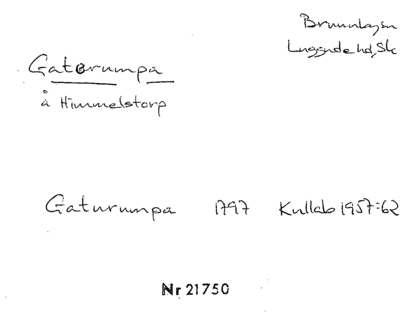 Brunnbysn
Luggude hd, Sk
Gaterumpa
å Himmelstorp
Gaturumpa 1797 Kullab 1957:62
Nr 21750